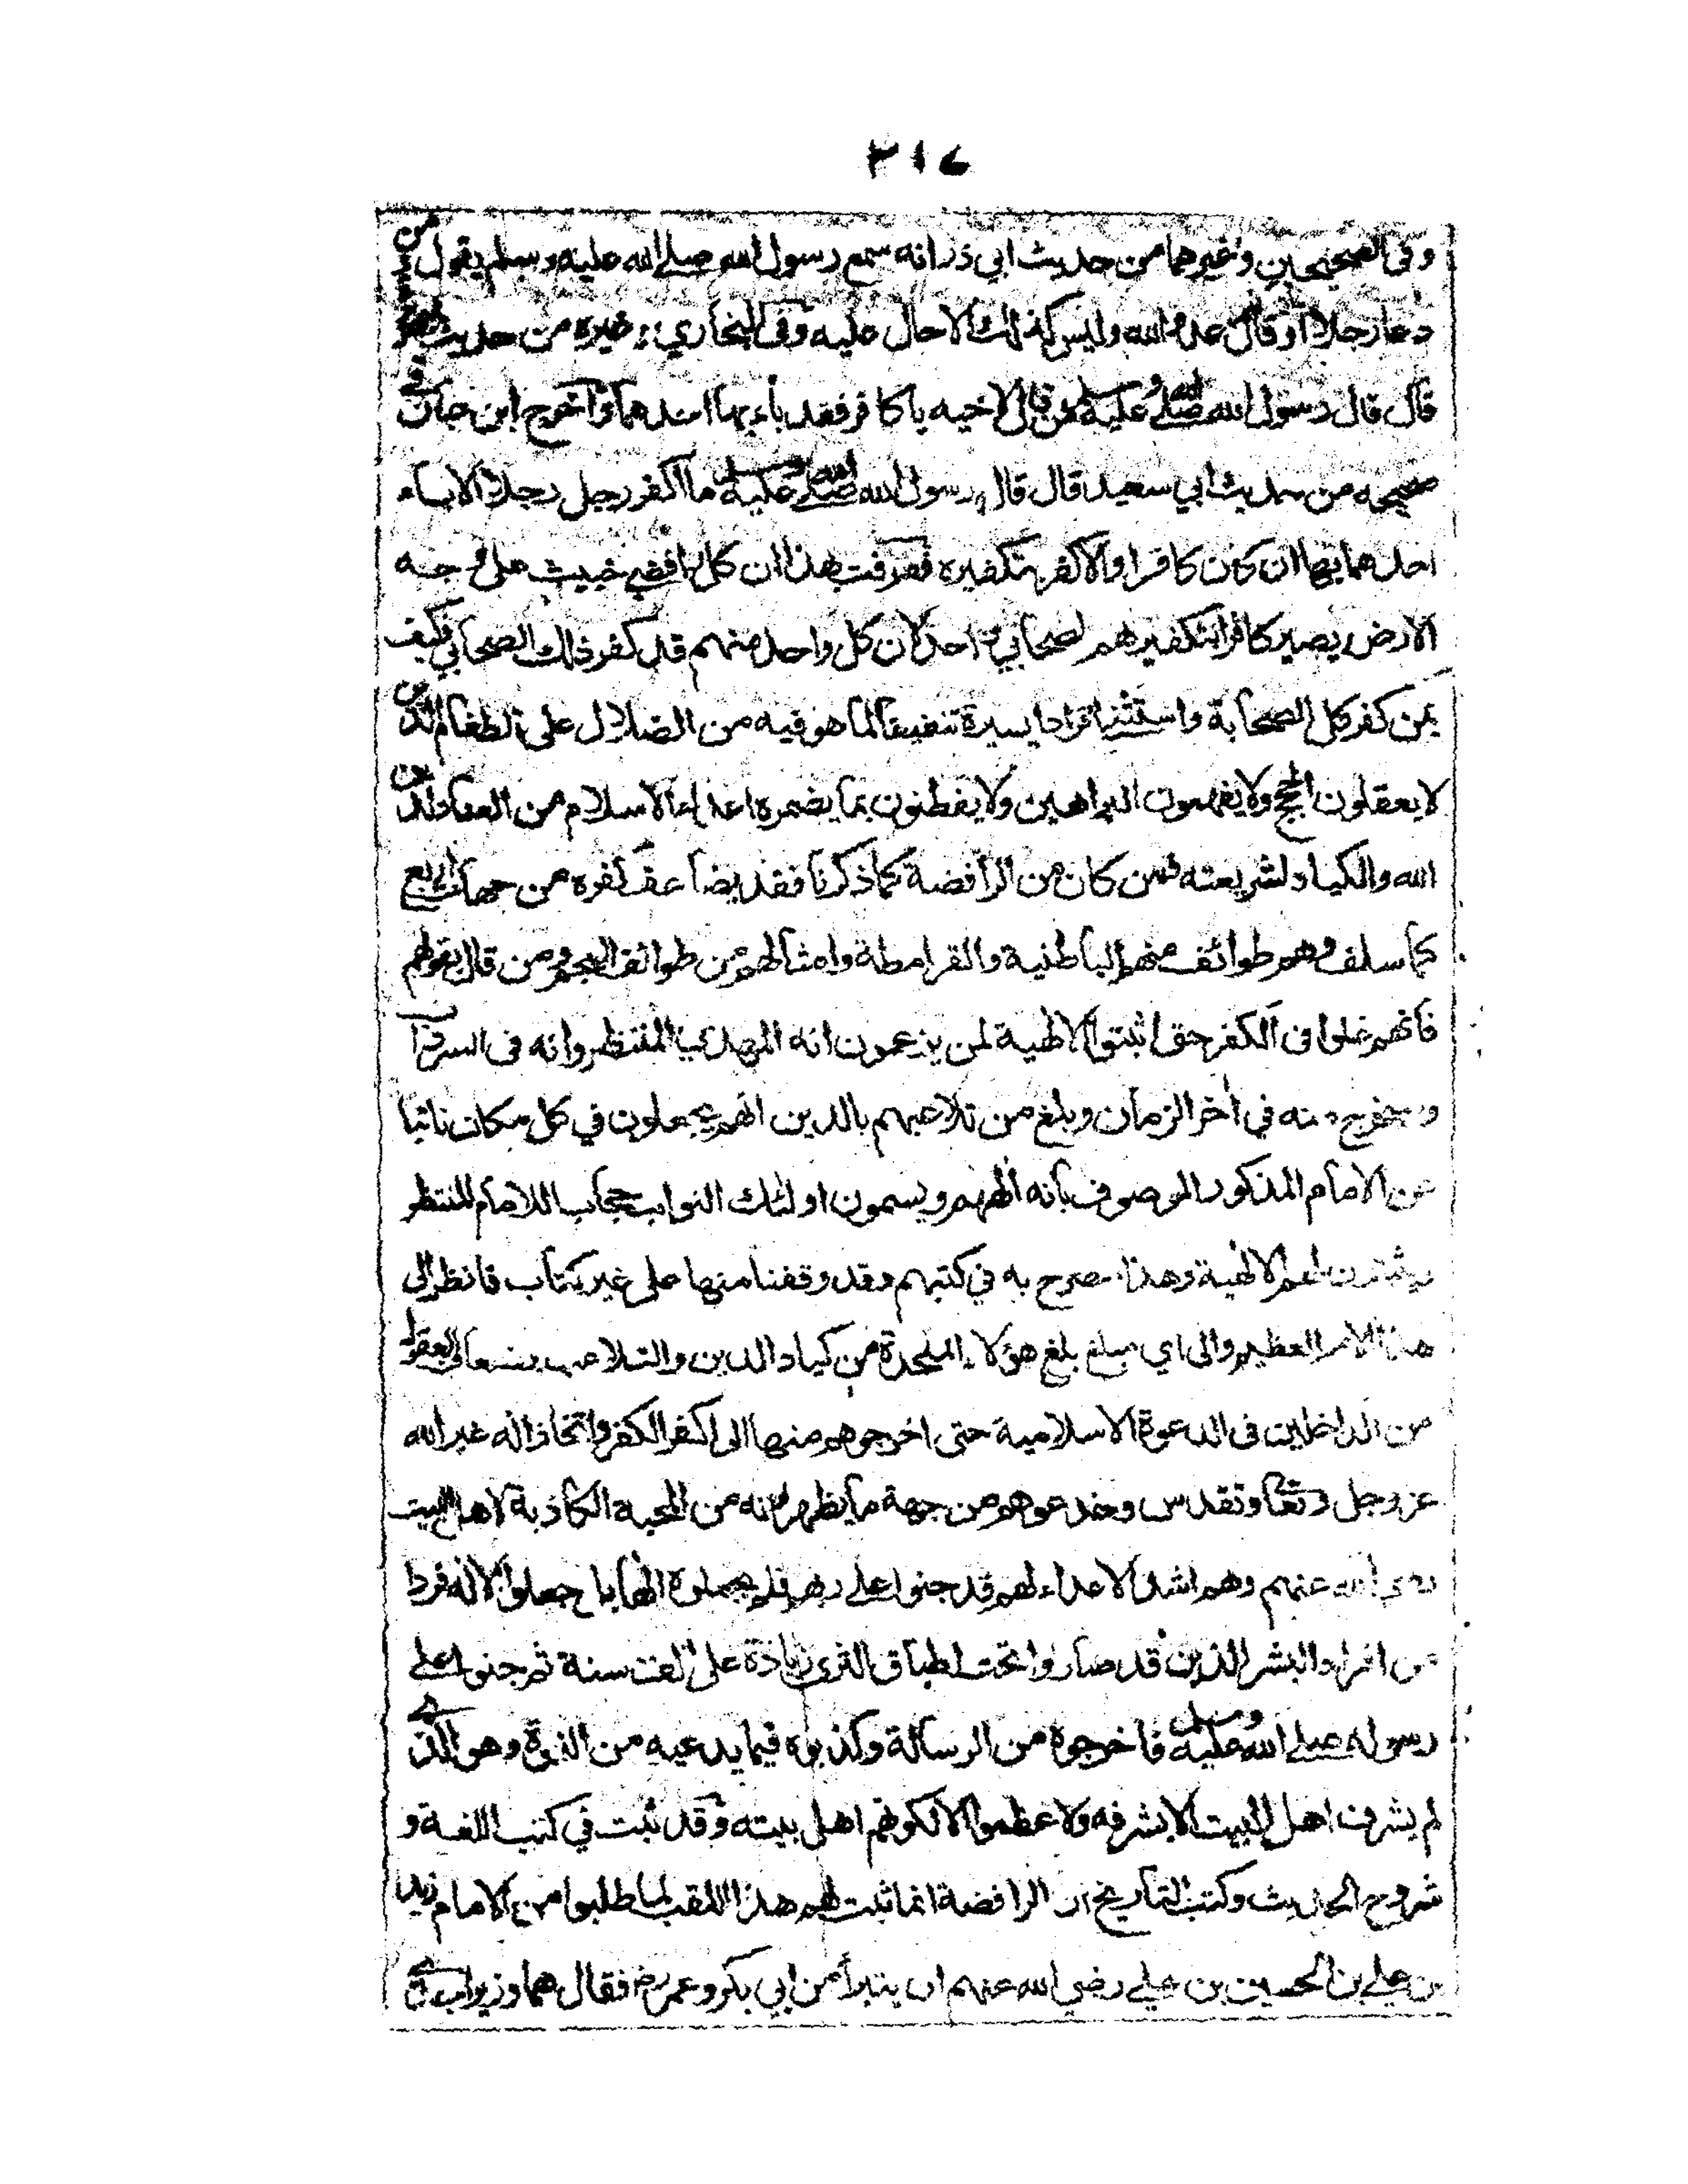 ٣١٤
وفي الصحيحين وغيرهما من حديث ابي ذر انه سمع رسول الله صلى الله عليه وسلم يقول من
دعا رجلا او قال عدو الله وليس كذلك الا حال عليه وفي البخاري وغيره من حديث
قال قال رسول الله صلى الله عليه وسلم من قال لاخيه يا كافر فقد باء بها احدهما واخرج ابن حبان في
صحيحه من حديث ابي سعيد قال قال رسول الله صلى الله عليه وسلم ما اكفر رجل رجلا الا باء
احدهما بها ان كان كافرا والا كفر بتكفيره فعرفت بهذا ان كل رافضي خبيث على وجه
الارض يصير كافرا بتكفيرهم لصحابي واحد لان كل واحد منهم قد كفر ذلك الصحابي فكيف
بمن كفر كل الصحابة واستثنى افرادا يسيرة تنفيقا لما هو فيه من الضلال على الطغام الذين
لا يعقلون الحجج ولا يفهمون البراهين ولا يفطنون بما يضمره اعداء الاسلام من العناد لدين
الله والكياد لشريعته فمن كان من الرافضة كما ذكرنا فقد يضاعف كفره من جهات اربع
كما سلف وهم طوائف منهم الباطنية والقرامطة وامثالهم من طوائف العجم ومن قال بقولهم
فانهم غلوا في الكفر حتى اثبتوا الالهية لمن يزعمون انه المهدي المنتظر وانه في السرداب
وسيخرج منه في اخر الزمان وبلغ من تلاعبهم بالدين انهم يجعلون في كل مكان نائبا
عن الامام المذكور الموصوف بانه الههم ويسمون اولئك النواب حجابا للامام المنتظر
ويثبتون لهم الالهية وهذا مصرح به في كتبهم وقد وقفنا منها على غير كتاب فانظر الى
هذا الامر العظيم والى اي مبلغ بلغ هؤلاء الملحدة من كياد الدين والتلاعب بضعاف العقول
من الداخلين في الدعوة الاسلامية حتى اخرجوهم منها الى اكفر الكفر واتخاذ اله غير الله
عز وجل وتعالى وتقدس وخدعوهم من جهة ما يظهرونه من المحبة الكاذبة لاهل البيت
رضي الله عنهم وهم اشد الاعداء لهم قد جنوا على ربهم فلم يجعلوه الها بل جعلوا الاله فردا
من افراد البشر الذين قد صاروا تحت اطباق الثرى زيادة على الف سنة ثم جنوا على
رسوله صلى الله عليه وسلم فاخرجوه من الرسالة وكذبوه فيما يدعيه من النبوة وهو الذي
لم يشرف اهل البيت الا بشرفه ولا عظموا الا لكونهم اهل بيته وقد ثبت في كتب اللغة و
شروح الحديث وكتب التاريخ ان الرافضة انما ثبت لهم هذا اللقب لما طلبوا من الامام زيد
بن علي بن الحسين بن علي رضي الله عنهم ان يتبرأ من ابي بكر وعمر رض فقال هما وزيرا جدي